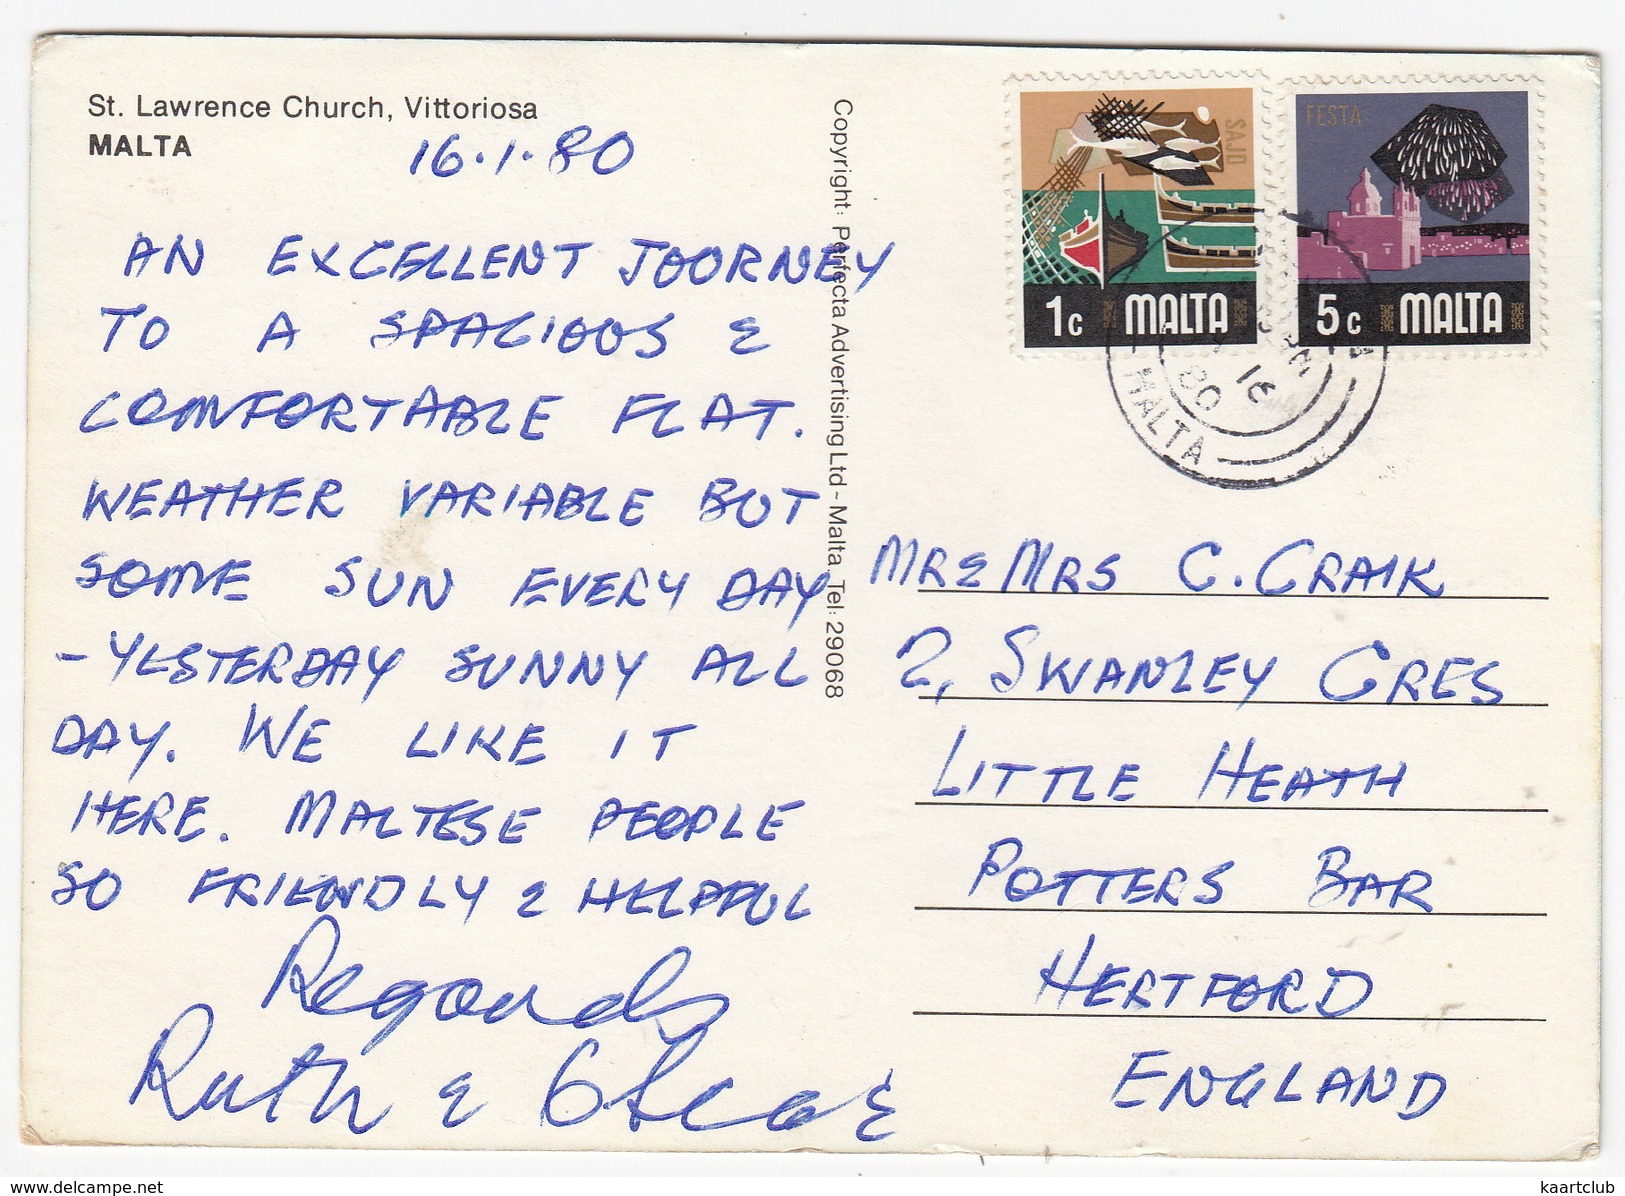 St. Lawrence Church, Vittoriosa
MALTA
16.1.80
AN EXCELLENT JOORNEY
TO A SPACIOUS &
COMFORTABLE FLAT.
WEATHER VARIABLE BUT
SOME SUN EVERY DAY
- YESTERDAY SUNNY ALL
DAY. WE LIKE IT
HERE. MALTESE PEOPLE
SO FRIENDLY & HELPFUL
Regards
Ruth &
Copyright: Perfecta Advertising Ltd - Malta. Tel: 29068
SAJD
1c MALTA
FESTA
5c MALTA
MALTA
16
80
MR & MRS C. CRAIK
2, SWANLEY CRES
LITTLE HEATH
POTTERS BAR
HERTFORD
ENGLAND
www.delcampe.net
kaartclub